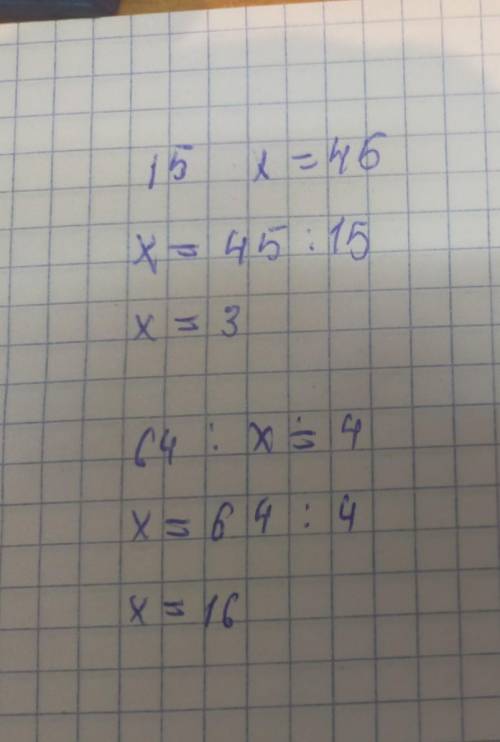 15 x = 46
x = 45 : 15
x = 3
64 : x = 4
x = 64 : 4
x = 16